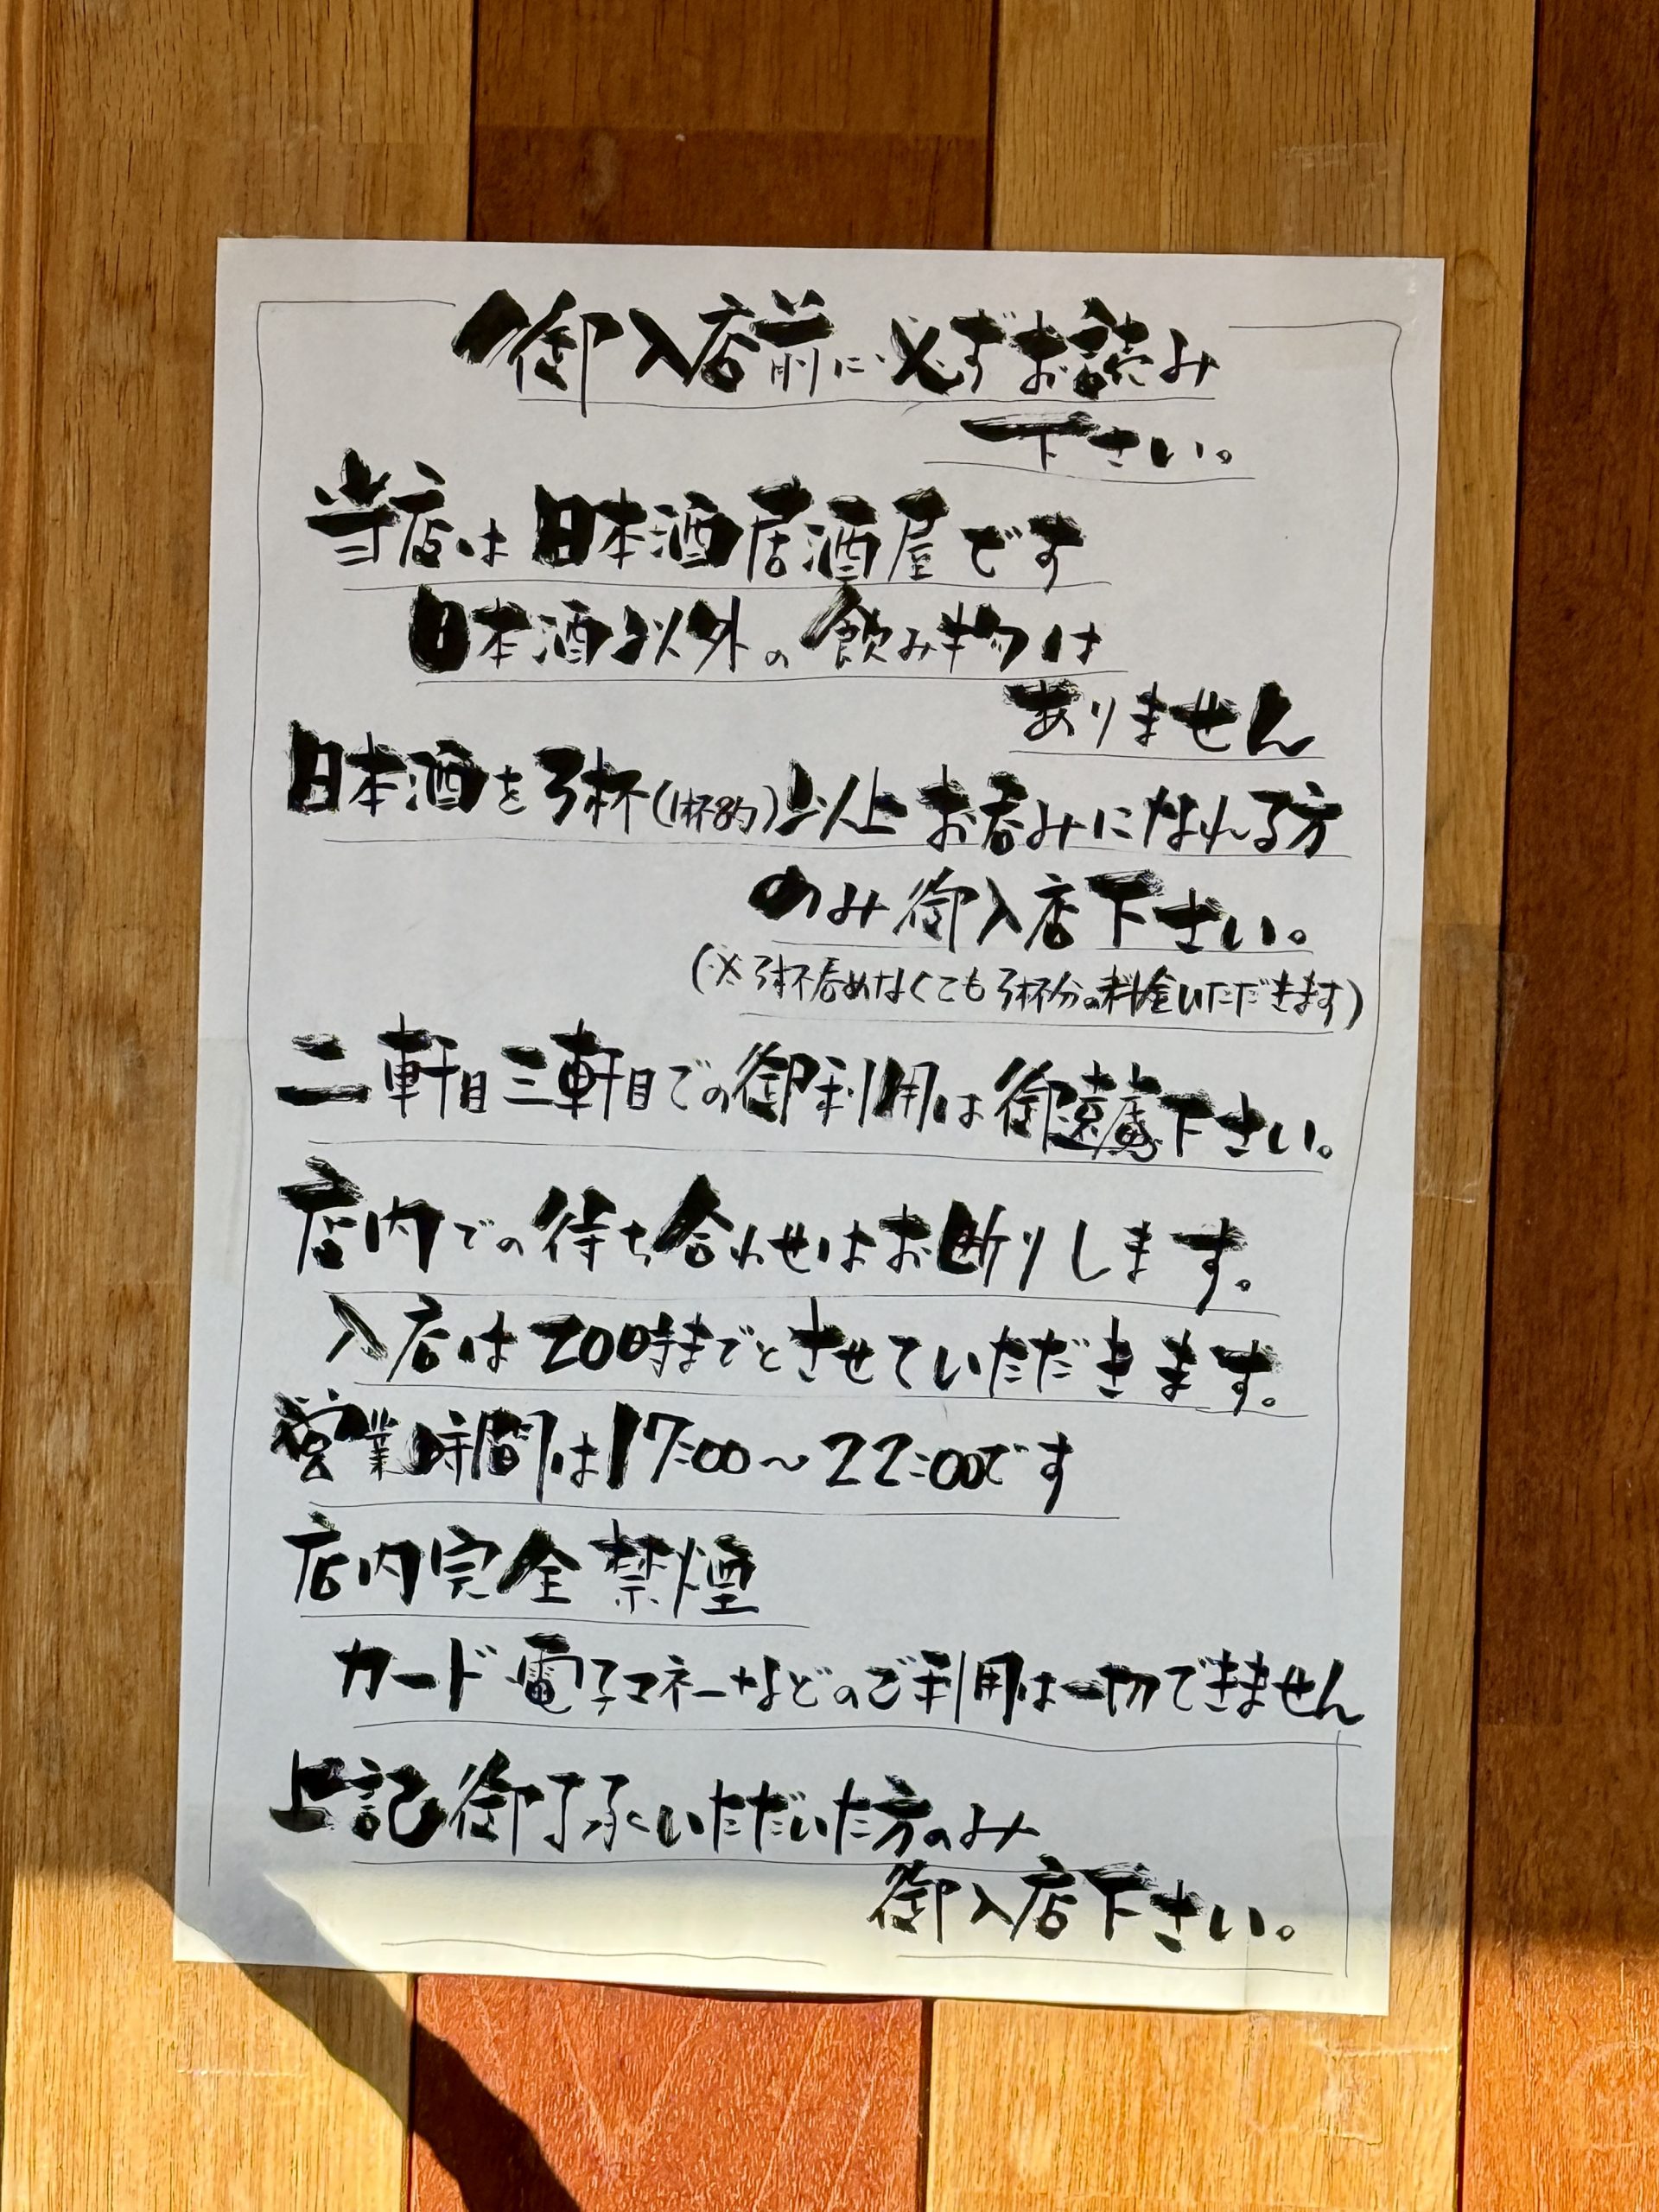 御入店前に必ずお読み
下さい。
当店は日本酒居酒屋です
日本酒以外の飲み物は
ありません
日本酒を3杯(1杯8勺)以上お呑みになれる方
のみ御入店下さい。
(※3杯呑めなくても3杯分の料金いただきます)
二軒目三軒目での御利用は御遠慮下さい。
店内での待ち合わせはお断りします。
入店は20時までとさせていただきます。
営業時間は17:00〜22:00です
店内完全禁煙
カード電子マネーなどのご利用は一切できません
上記御了承いただいた方のみ
御入店下さい。